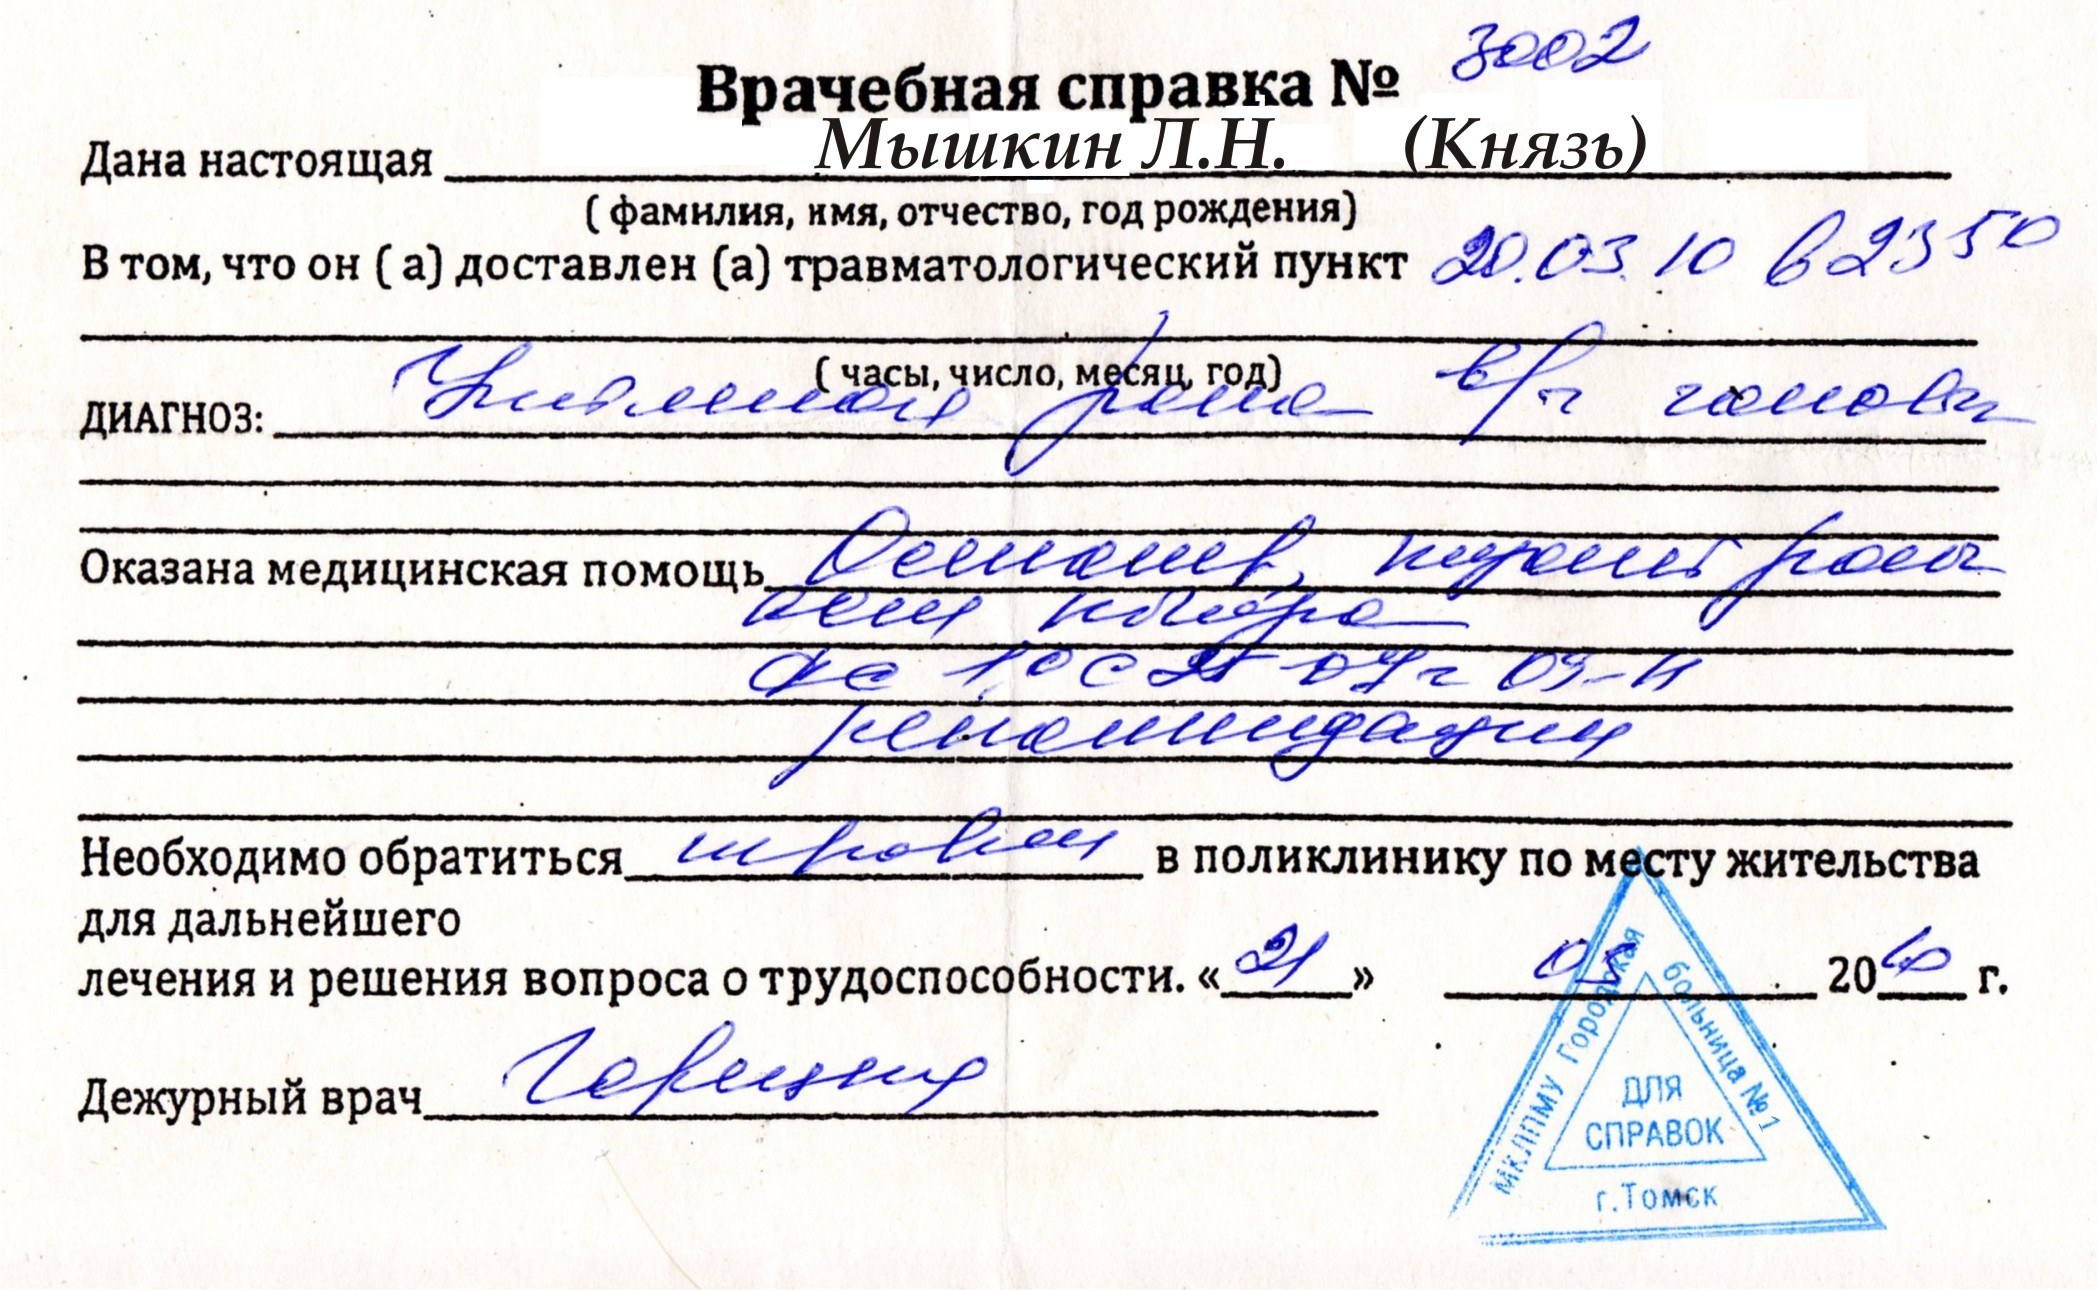 Врачебная справка № 3002
Дана настоящая Мышкин Л.Н. (Князь)
( фамилия, имя, отчество, год рождения)
В том, что он ( а) доставлен (а) травматологический пункт 20.03.10 в 23 50
( часы, число, месяц, год)
ДИАГНОЗ: рана в/ч головы
Оказана медицинская помощь Осмотр,
рекомендации
Необходимо обратиться в поликлинику по месту жительства
для дальнейшего
лечения и решения вопроса о трудоспособности. «21» 03 2010 г.
Дежурный врач
МКЛПМУ Городская больница № 1
ДЛЯ
СПРАВОК
г. Томск